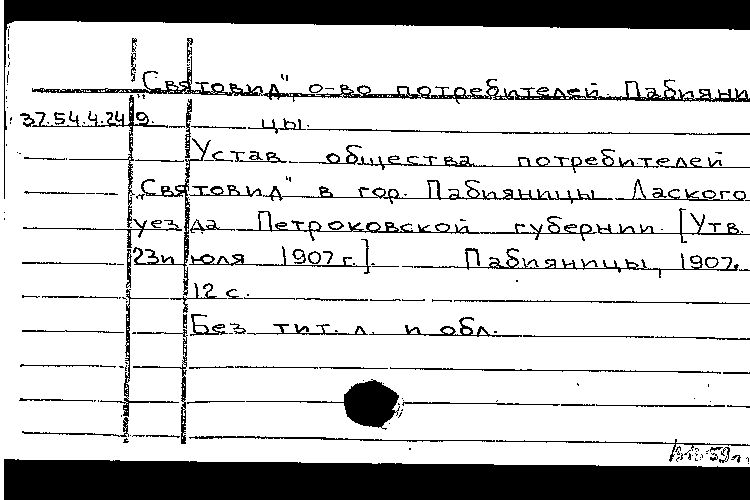 "Святовид", о-во потребителей. Пабияни
37.54.4.249. цы.
Устав общества потребителей
"Святовид" в гор. Пабияницы Лаского
уезда Петроковской губернии. [Утв.
23 июля 1907 г.]. Пабияницы, 1907.
12 с.
Без тит. л. и обл.